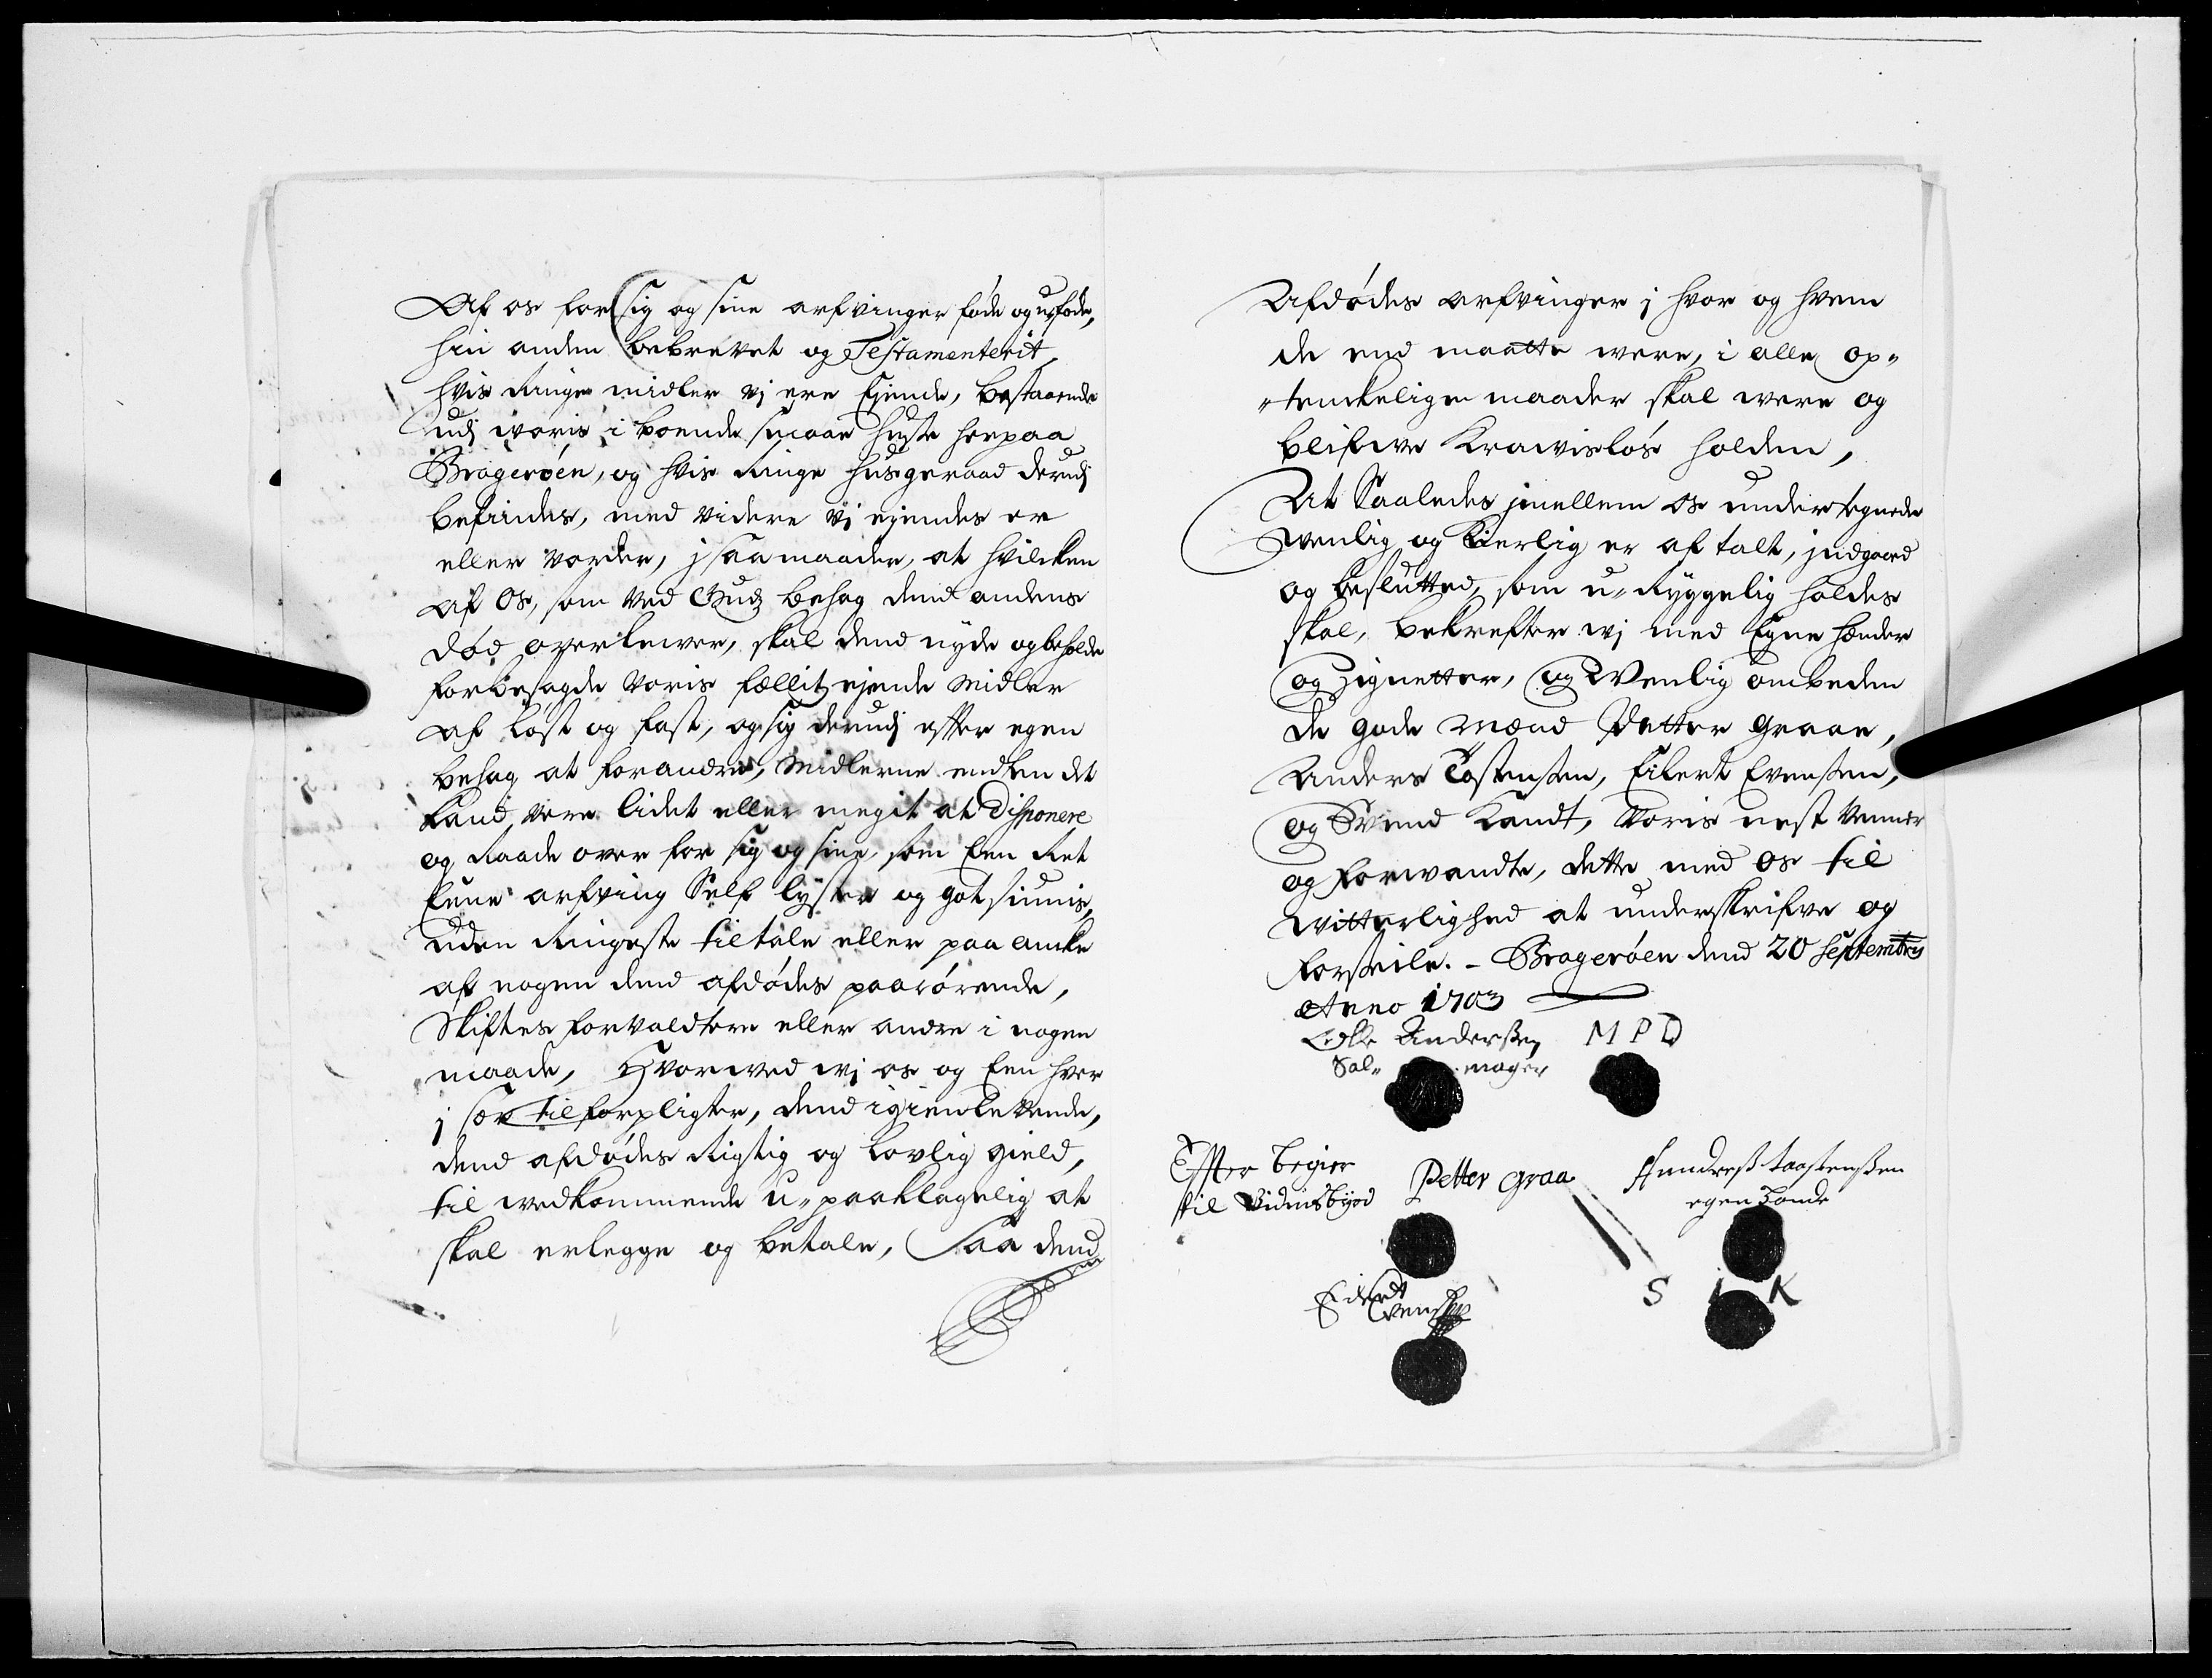 Af os for sig og sine arfvinger føde og ufødt,
hin anden bebrevet og Testamenterit,
hvis Ringe midler vj ere Ejende, bestaaende
udj woris i boende smaae huse her paa
Bragerøen, og hvis Ringe husgeraad derudj
befindes, med videre vj ejendes er
eller vorder, j saa maader, at hvilcken
af Os, som ved Gudz behag dend andens
død overlewer, skal dend nyde og beholde
forbesagde voris fællitz ejende midler
af løst og fast, og sig derudj effter egen
behag at forandre, midlerne endten det
kand være lidet eller megit at Disponere
og Raade over for sig og sine, som Een Ret
Eene arfving Self lyster og got siunis,
uden Ringeste tiltale eller paa ancke
af nogen dend afdødes paarørende,
Skiftes forvaldtere eller andre i nogen
maade, Hvorwed wj os og Een hver
j sær tilforpligter, dend igienlevende,
dend afdødes Rigtig og lovlig gield,
til wedkommende u-paaklagelig at
skal erlegge og betale, Saa dend
Afdødes arfvinger j hvor og hvem
de end maatte were, i alle op-
-tenckelige maader skal were og
blifwe Krawisløs holden,
At Saaledes jmellem os undertegnede
wenlig og Kierlig er aftalt, jndgaaed
og beslutted, som u-Ryggelig holdes
skal, bekrefter wj med Egne hænder
og Zignetter, og Wenlig ombeden
de gode mænd Petter Graae,
Anders Tostensen, Eilert Evensen,
og Svend Kandt, Voris nest Venner
og forwandte, dette med os til
witterlighed at underskrifwe og
forseile. - Bragerøen dend 20 Septembris
Anno 1703
Anderssen M P D
Sal- mager
Effter begier
til Vidnisbyrd
Petter Graa
Anndersß Taastensßen
egen Hande
Eilert
Evensen
S i K